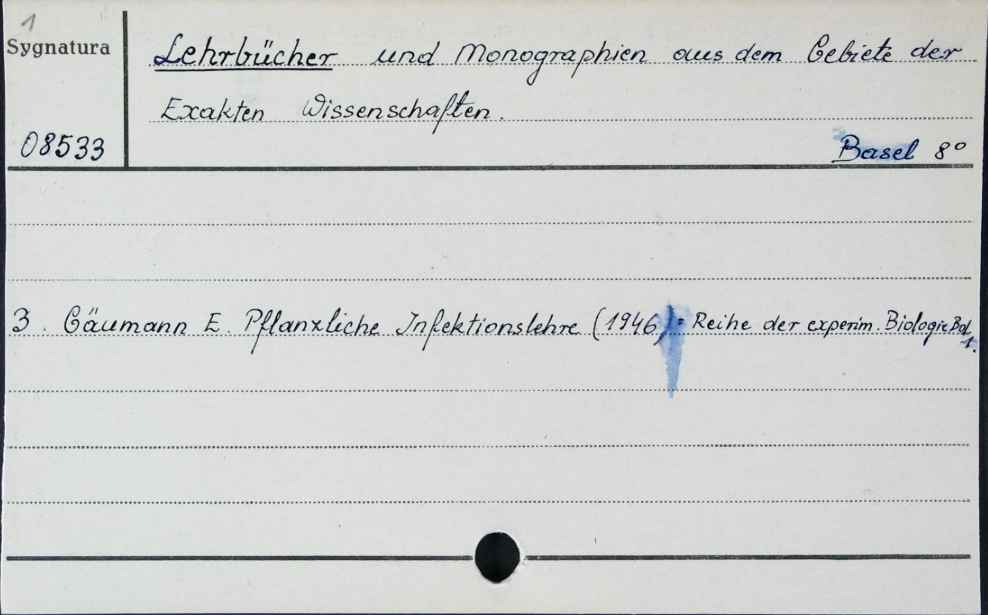 1
Sygnatura
Lehrbücher und Monographien aus dem Gebiete der
Exakten Wissenschaften.
08533
Basel 8°
3. Gäumann E. Pflanzliche Infektionslehre (1946) = Reihe der experim. Biologie Bd
1.